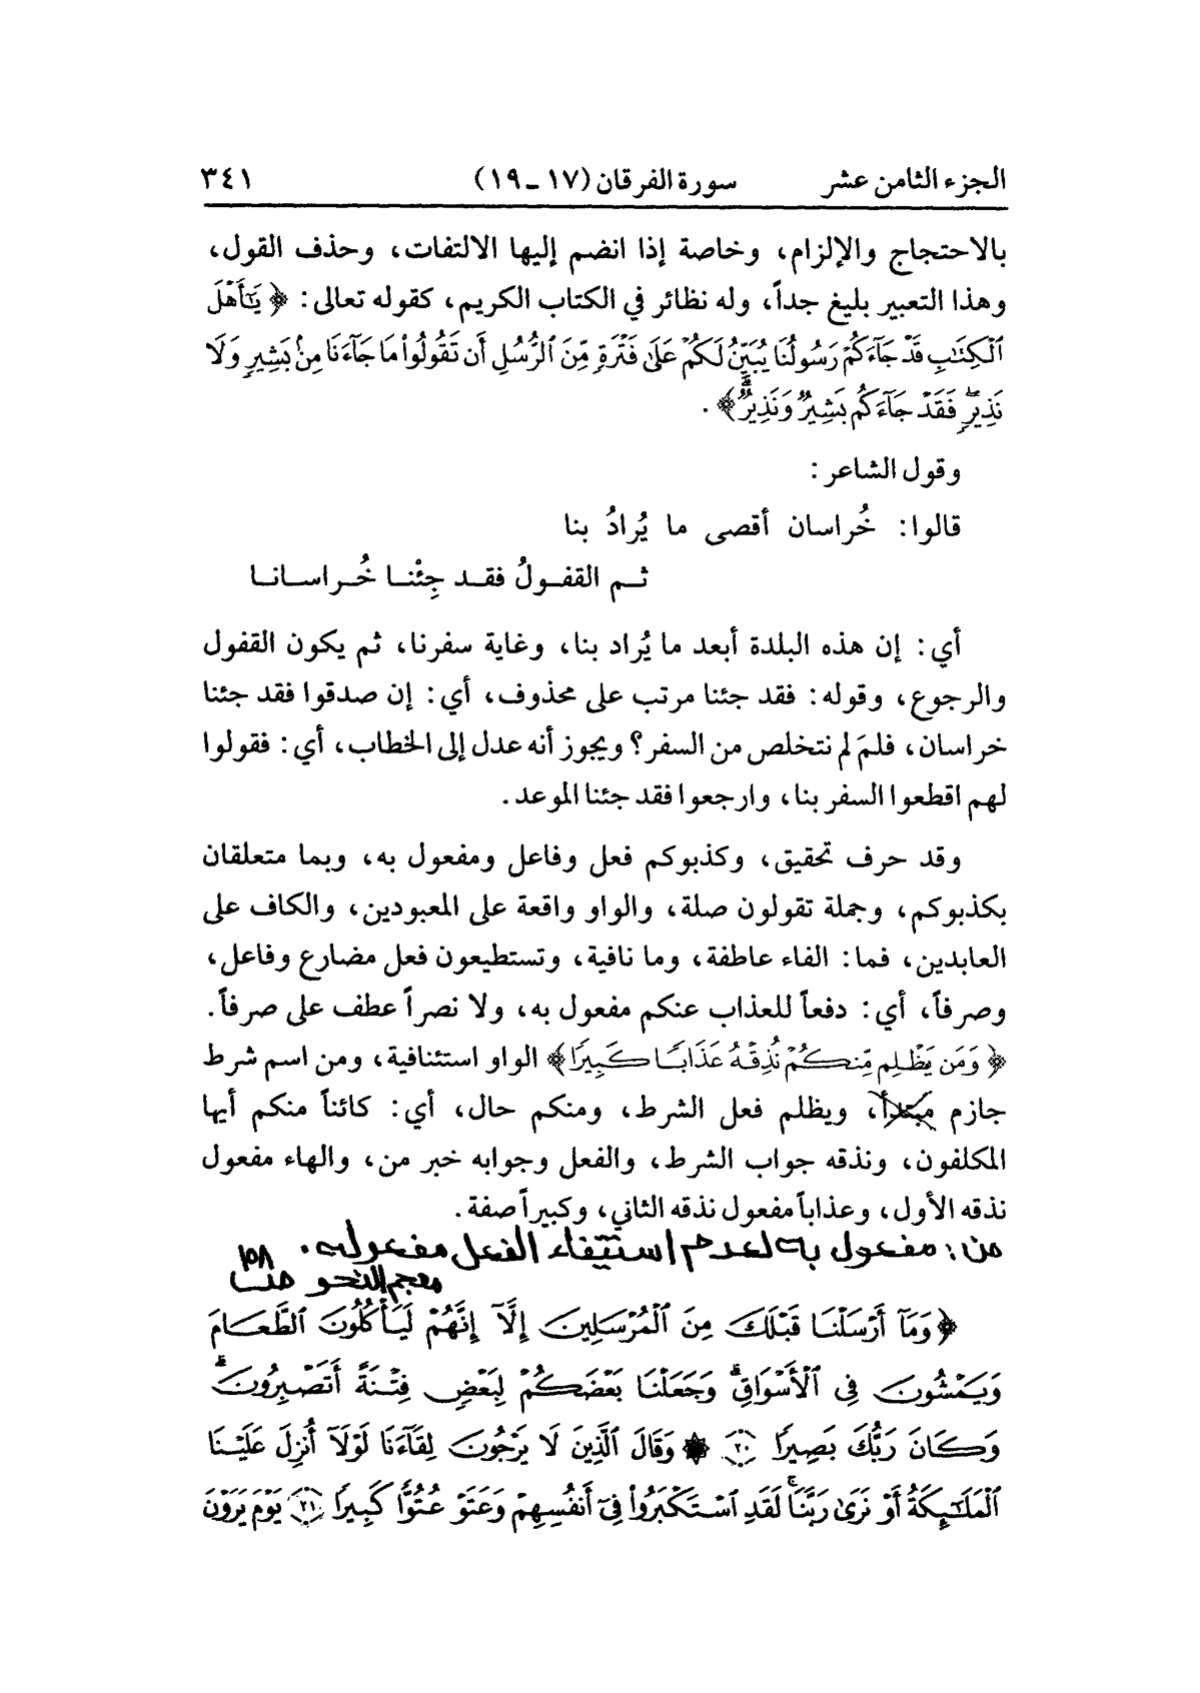 الجزء الثامن عشر سورة الفرقان (١٧ - ١٩) ٣٤١
بالاحتجاج والإلزام، وخاصة إذا انضم إليها الالتفات، وحذف القول،
وهذا التعبير بليغ جداً، وله نظائر في الكتاب الكريم، كقوله تعالى: ﴿يَٰٓأَهْلَ
ٱلْكِتَٰبِ قَدْ جَآءَكُمْ رَسُولُنَا يُبَيِّنُ لَكُمْ عَلَىٰ فَتْرَةٍ مِّنَ ٱلرُّسُلِ أَن تَقُولُوا۟ مَا جَآءَنَا مِنۢ بَشِيرٍ وَلَا
نَذِيرٍ ۖ فَقَدْ جَآءَكُم بَشِيرٌ وَنَذِيرٌ ۗ﴾.
وقول الشاعر:
قالوا: خُراسان أقصى ما يُرادُ بنا
ثم القفولُ فقد جِئْنا خُراسانا
أي: إن هذه البلدة أبعد ما يُراد بنا، وغاية سفرنا، ثم يكون القفول
والرجوع، وقوله: فقد جئنا مرتب على محذوف، أي: إن صدقوا فقد جئنا
خراسان، فلمَ لم نتخلص من السفر؟ ويجوز أنه عدل إلى الخطاب، أي: فقولوا
لهم اقطعوا السفر بنا، وارجعوا فقد جئنا الموعد.
وقد حرف تحقيق، وكذبوكم فعل وفاعل ومفعول به، وبما متعلقان
بكذبوكم، وجملة تقولون صلة، والواو واقعة على المعبودين، والكاف على
العابدين، فما: الفاء عاطفة، وما نافية، وتستطيعون فعل مضارع وفاعل،
وصرفاً، أي: دفعاً للعذاب عنكم مفعول به، ولا نصراً عطف على صرفاً.
﴿وَمَن يَظْلِم مِّنكُمْ نُذِقْهُ عَذَابًا كَبِيرًا﴾ الواو استئنافية، ومن اسم شرط
جازم مبتدأ، ويظلم فعل الشرط، ومنكم حال، أي: كائناً منكم أيها
المكلفون، ونذقه جواب الشرط، والفعل وجوابه خبر من، والهاء مفعول
نذقه الأول، وعذاباً مفعول نذقه الثاني، وكبيراً صفة.
من: مفعول به لعدم استيفاء الفعل مفعوليه.
معجم النحو ٣٥٨
﴿وَمَآ أَرْسَلْنَا قَبْلَكَ مِنَ ٱلْمُرْسَلِينَ إِلَّآ إِنَّهُمْ لَيَأْكُلُونَ ٱلطَّعَامَ
وَيَمْشُونَ فِى ٱلْأَسْوَاقِ ۗ وَجَعَلْنَا بَعْضَكُمْ لِبَعْضٍ فِتْنَةً أَتَصْبِرُونَ ۗ
وَكَانَ رَبُّكَ بَصِيرًا ﴿٢٠﴾ ۞ وَقَالَ ٱلَّذِينَ لَا يَرْجُونَ لِقَآءَنَا لَوْلَآ أُنزِلَ عَلَيْنَا
ٱلْمَلَٰٓئِكَةُ أَوْ نَرَىٰ رَبَّنَا ۗ لَقَدِ ٱسْتَكْبَرُوا۟ فِىٓ أَنفُسِهِمْ وَعَتَوْ عُتُوًّا كَبِيرًا ﴿٢١﴾ يَوْمَ يَرَوْنَ